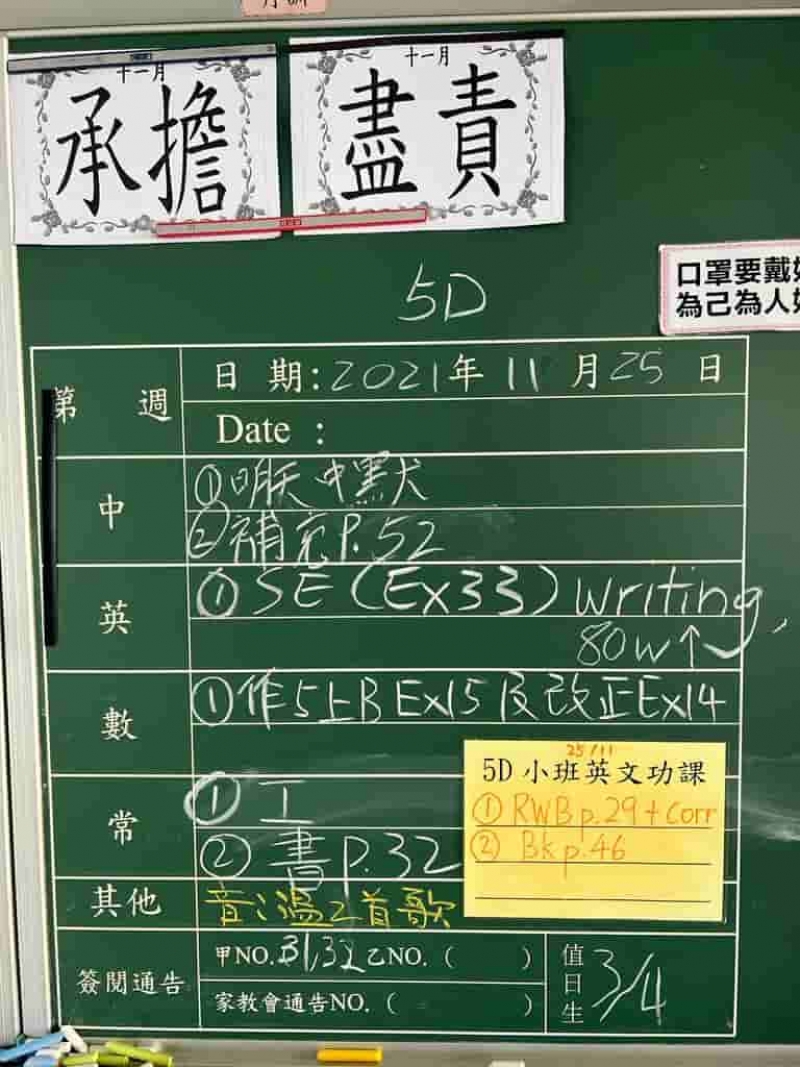 十一月
承擔
十一月
盡責
口罩要戴好
為己為人
5D
第 週
日 期：2021年 11 月 25 日
Date :
中
①明天中默
②補充P.52
英
①SE (Ex33) writing,
80w↑
數
①作5上B Ex15 及改正Ex14
常
①工
②書P.32
25/11
5D 小班英文功課
① RWB p.29 + Corr
② Bk p.46
其他
音：溫2首歌
簽閱通告
甲NO. 31,32 乙NO. ( )
家教會通告NO. ( )
值日生 3/4